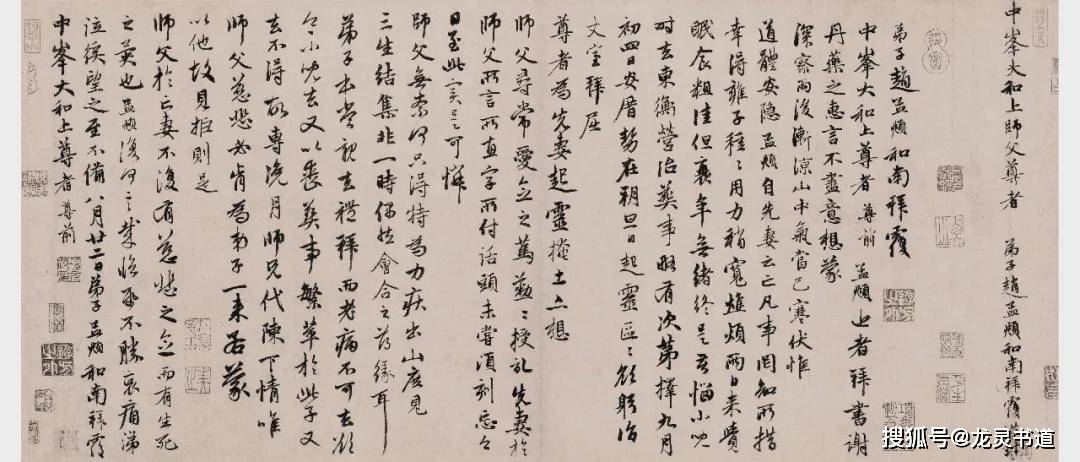 中峯大和上師父尊者 弟子趙孟頫和南拜覆
弟子趙孟頫和南拜覆
中峯大和上尊者 尊前 孟頫 近者拜書謝
丹藥之惠言不盡意想蒙
深察雨後漸涼山中氣當已寒伏惟
道體安隱孟頫自先妻云亡凡事罔知所措
幸得雍子種種用力稍寬焦煩兩日來覺
眠食粗佳但衰年無緒終是苦惱小兒
時去東衡營治葬事略有次第擇九月
初四日安厝勢在朔旦日起靈區區欲躬詣
丈室拜屈
尊者為先妻起靈掩土亡想
師父尋常愛念之篤懃懃授記先妻於
師父所言所直字所付話頭未嘗須刻忘之
日至此實是可憐
師父無奈何只得特為力疾出山庶見
三生結集非一時偶然會合之薄緣耳
弟子本當親去禮拜而老病不可去欲
令小兒去又以喪葬事繁萃於此子又
去不得所專浼月師兄代陳下情唯
師父慈悲必肯為弟子一來若蒙
以他故見拒則是
師父於亡妻不復有慈悲之念而有生死
之異也孟頫復何言臨紙不勝哀痛涕
泣俟望之至不備八月廿二日弟子孟頫和南拜覆
中峯大和上尊者 尊前
搜狐号@龙灵书道